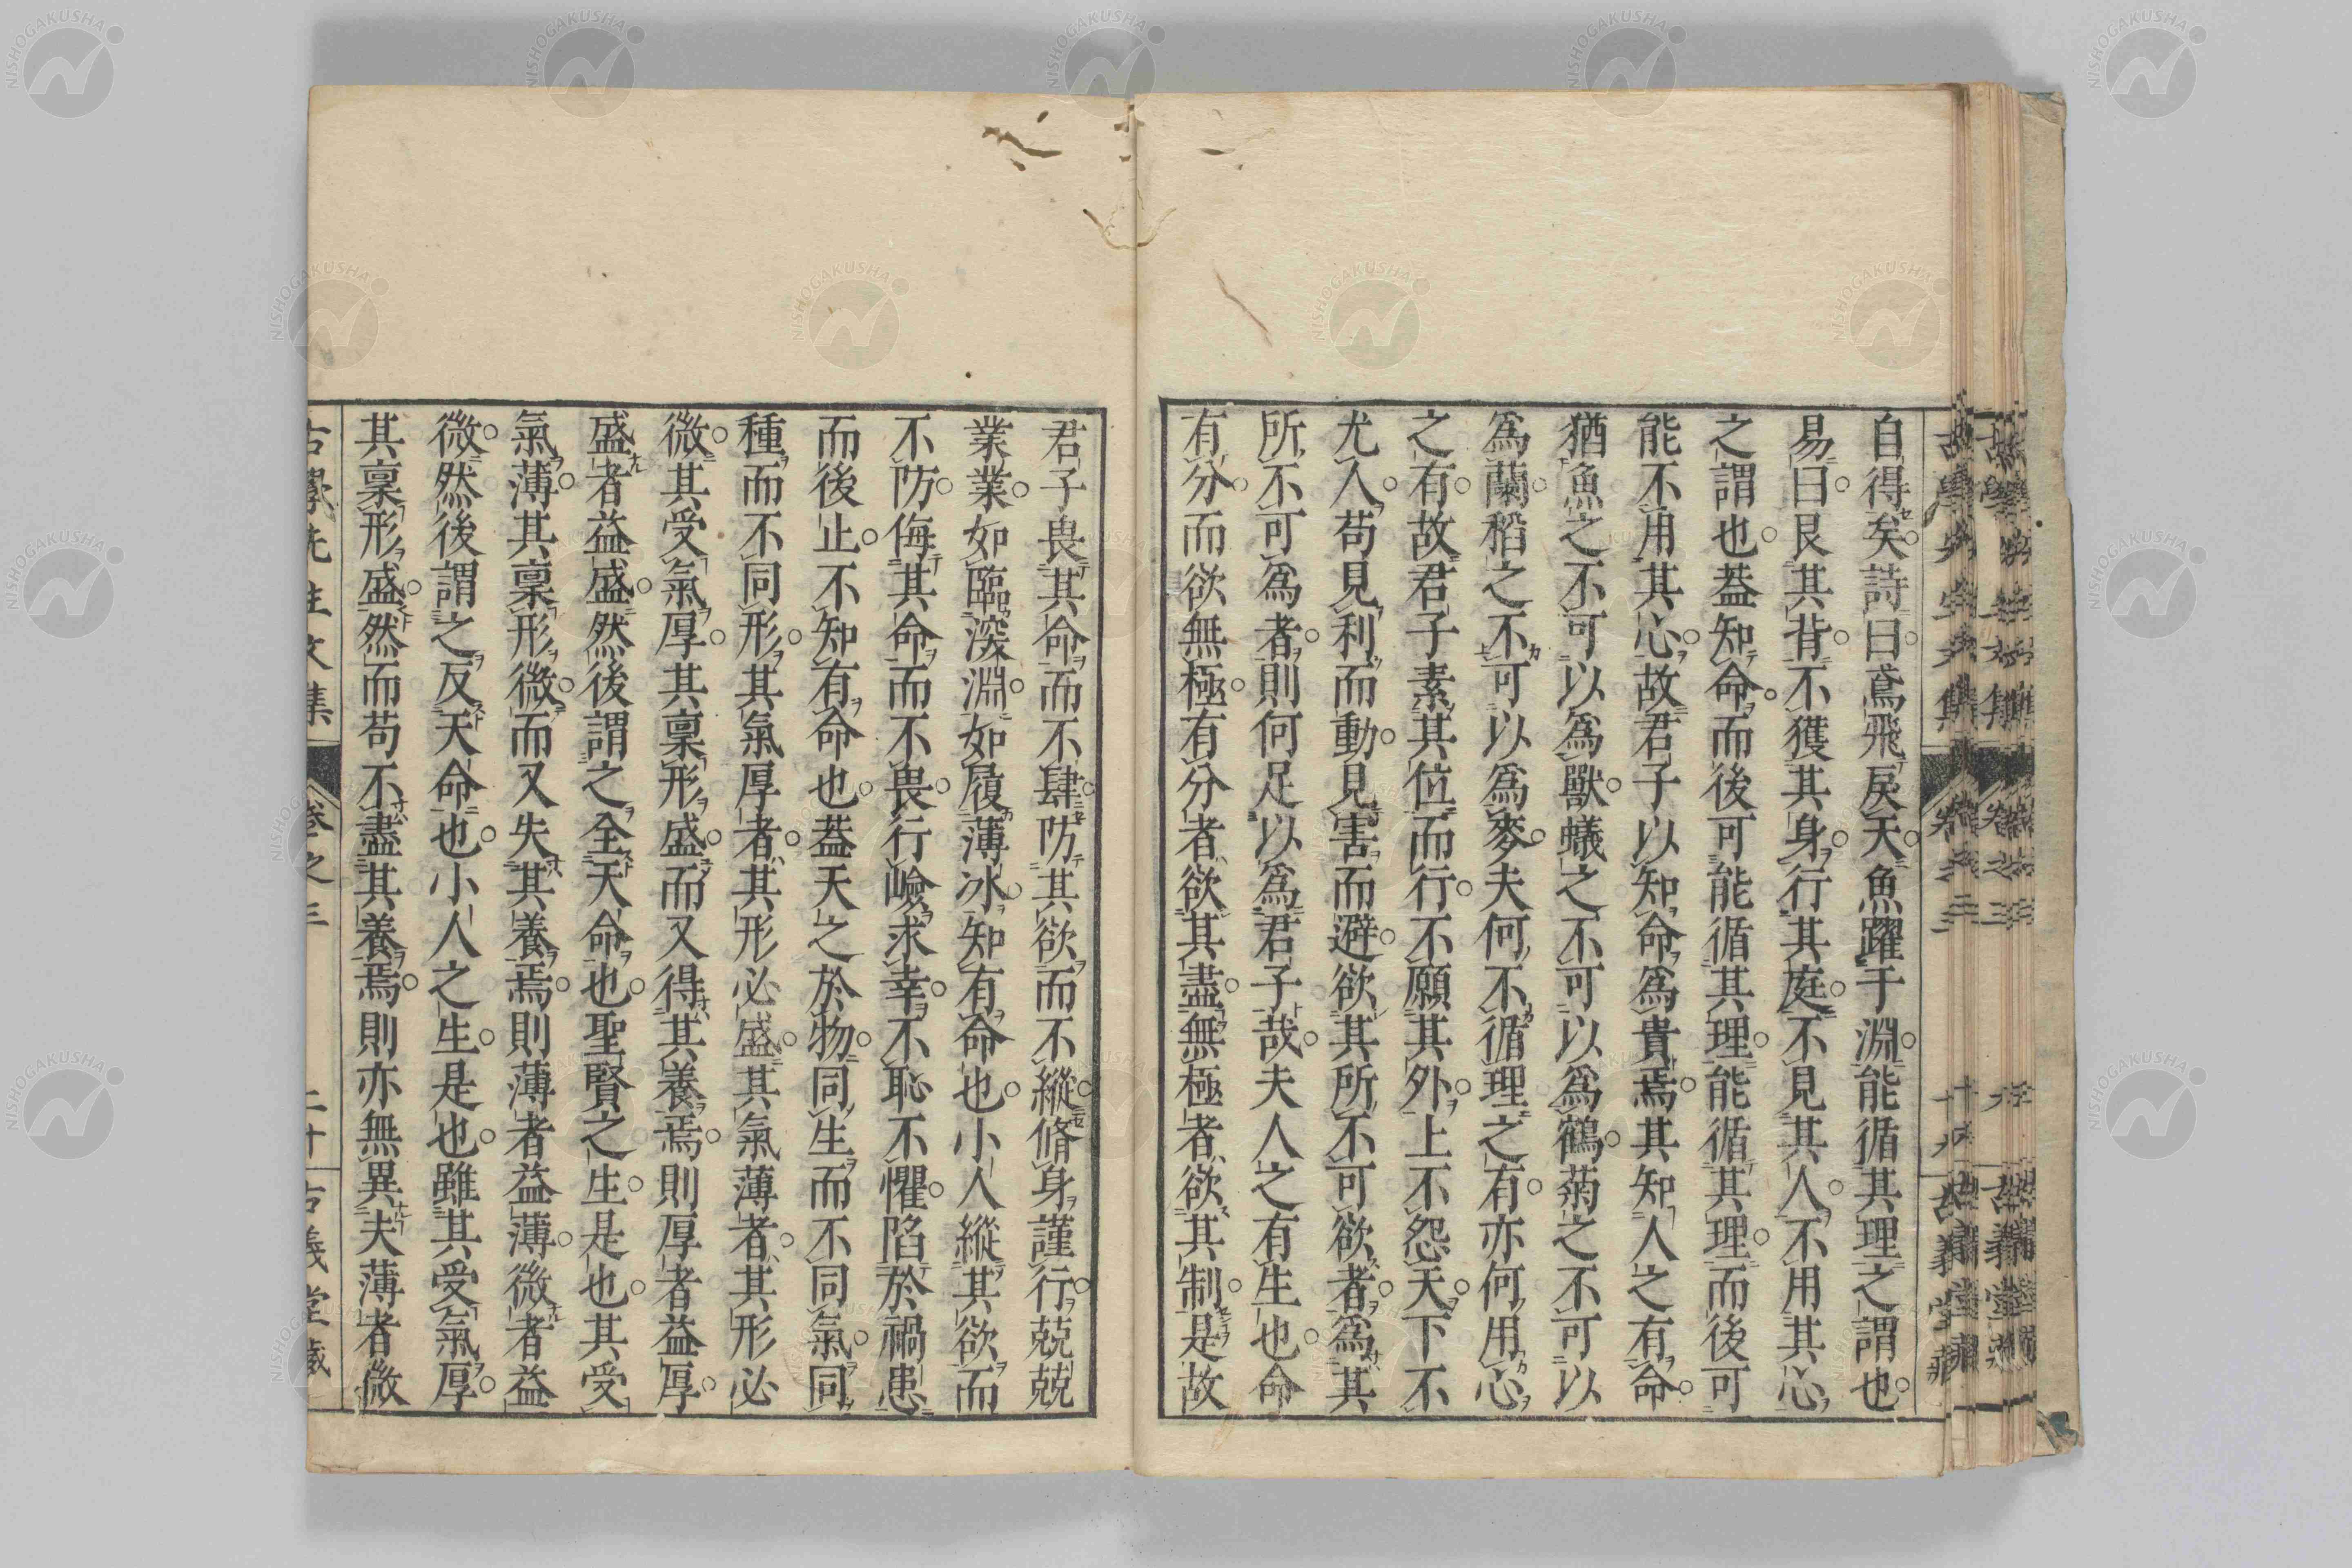 自得矣詩曰鳶飛戻天魚躍于淵能循其理之謂也
易曰艮其背不獲其身行其庭不見其人不用其心
之謂也葢知命而後可能循其理能循其理而後可
能不用其心故君子以知命爲貴焉其知人之有命
猶魚之不可以爲獸蟻之不可以爲鶴菊之不可以
爲蘭稻之不可以爲麥夫何不循理之有亦何用心
之有故君子素其位而行不願其外上不怨天下不
尤人苟見利而動見害而避欲其所不可欲者爲其
所不可爲者則何足以爲君子哉夫人之有生也命
有分而欲無極有分者欲其盡無極者欲其制是故
君子畏其命而不肆防其欲而不縱脩身謹行兢兢
業業如臨深淵如履薄冰知有命也小人縱其欲而
不防侮其命而不畏行嶮求幸不恥不懼陷於禍患
而後止不知有命也葢天之於物同生而不同氣同
種而不同形其氣厚者其形必盛其氣薄者其形必
微其受氣厚其稟形盛而又得其養焉則厚者益厚
盛者益盛然後謂之全天命也聖賢之生是也其受
氣薄其稟形微而又失其養焉則薄者益薄微者益
微然後謂之反天命也小人之生是也雖其受氣厚
其稟形盛然而苟不盡其養焉則亦無異夫薄者微
古學先生文集 卷之三 二十 古義堂藏
NISHOGAKUSHA